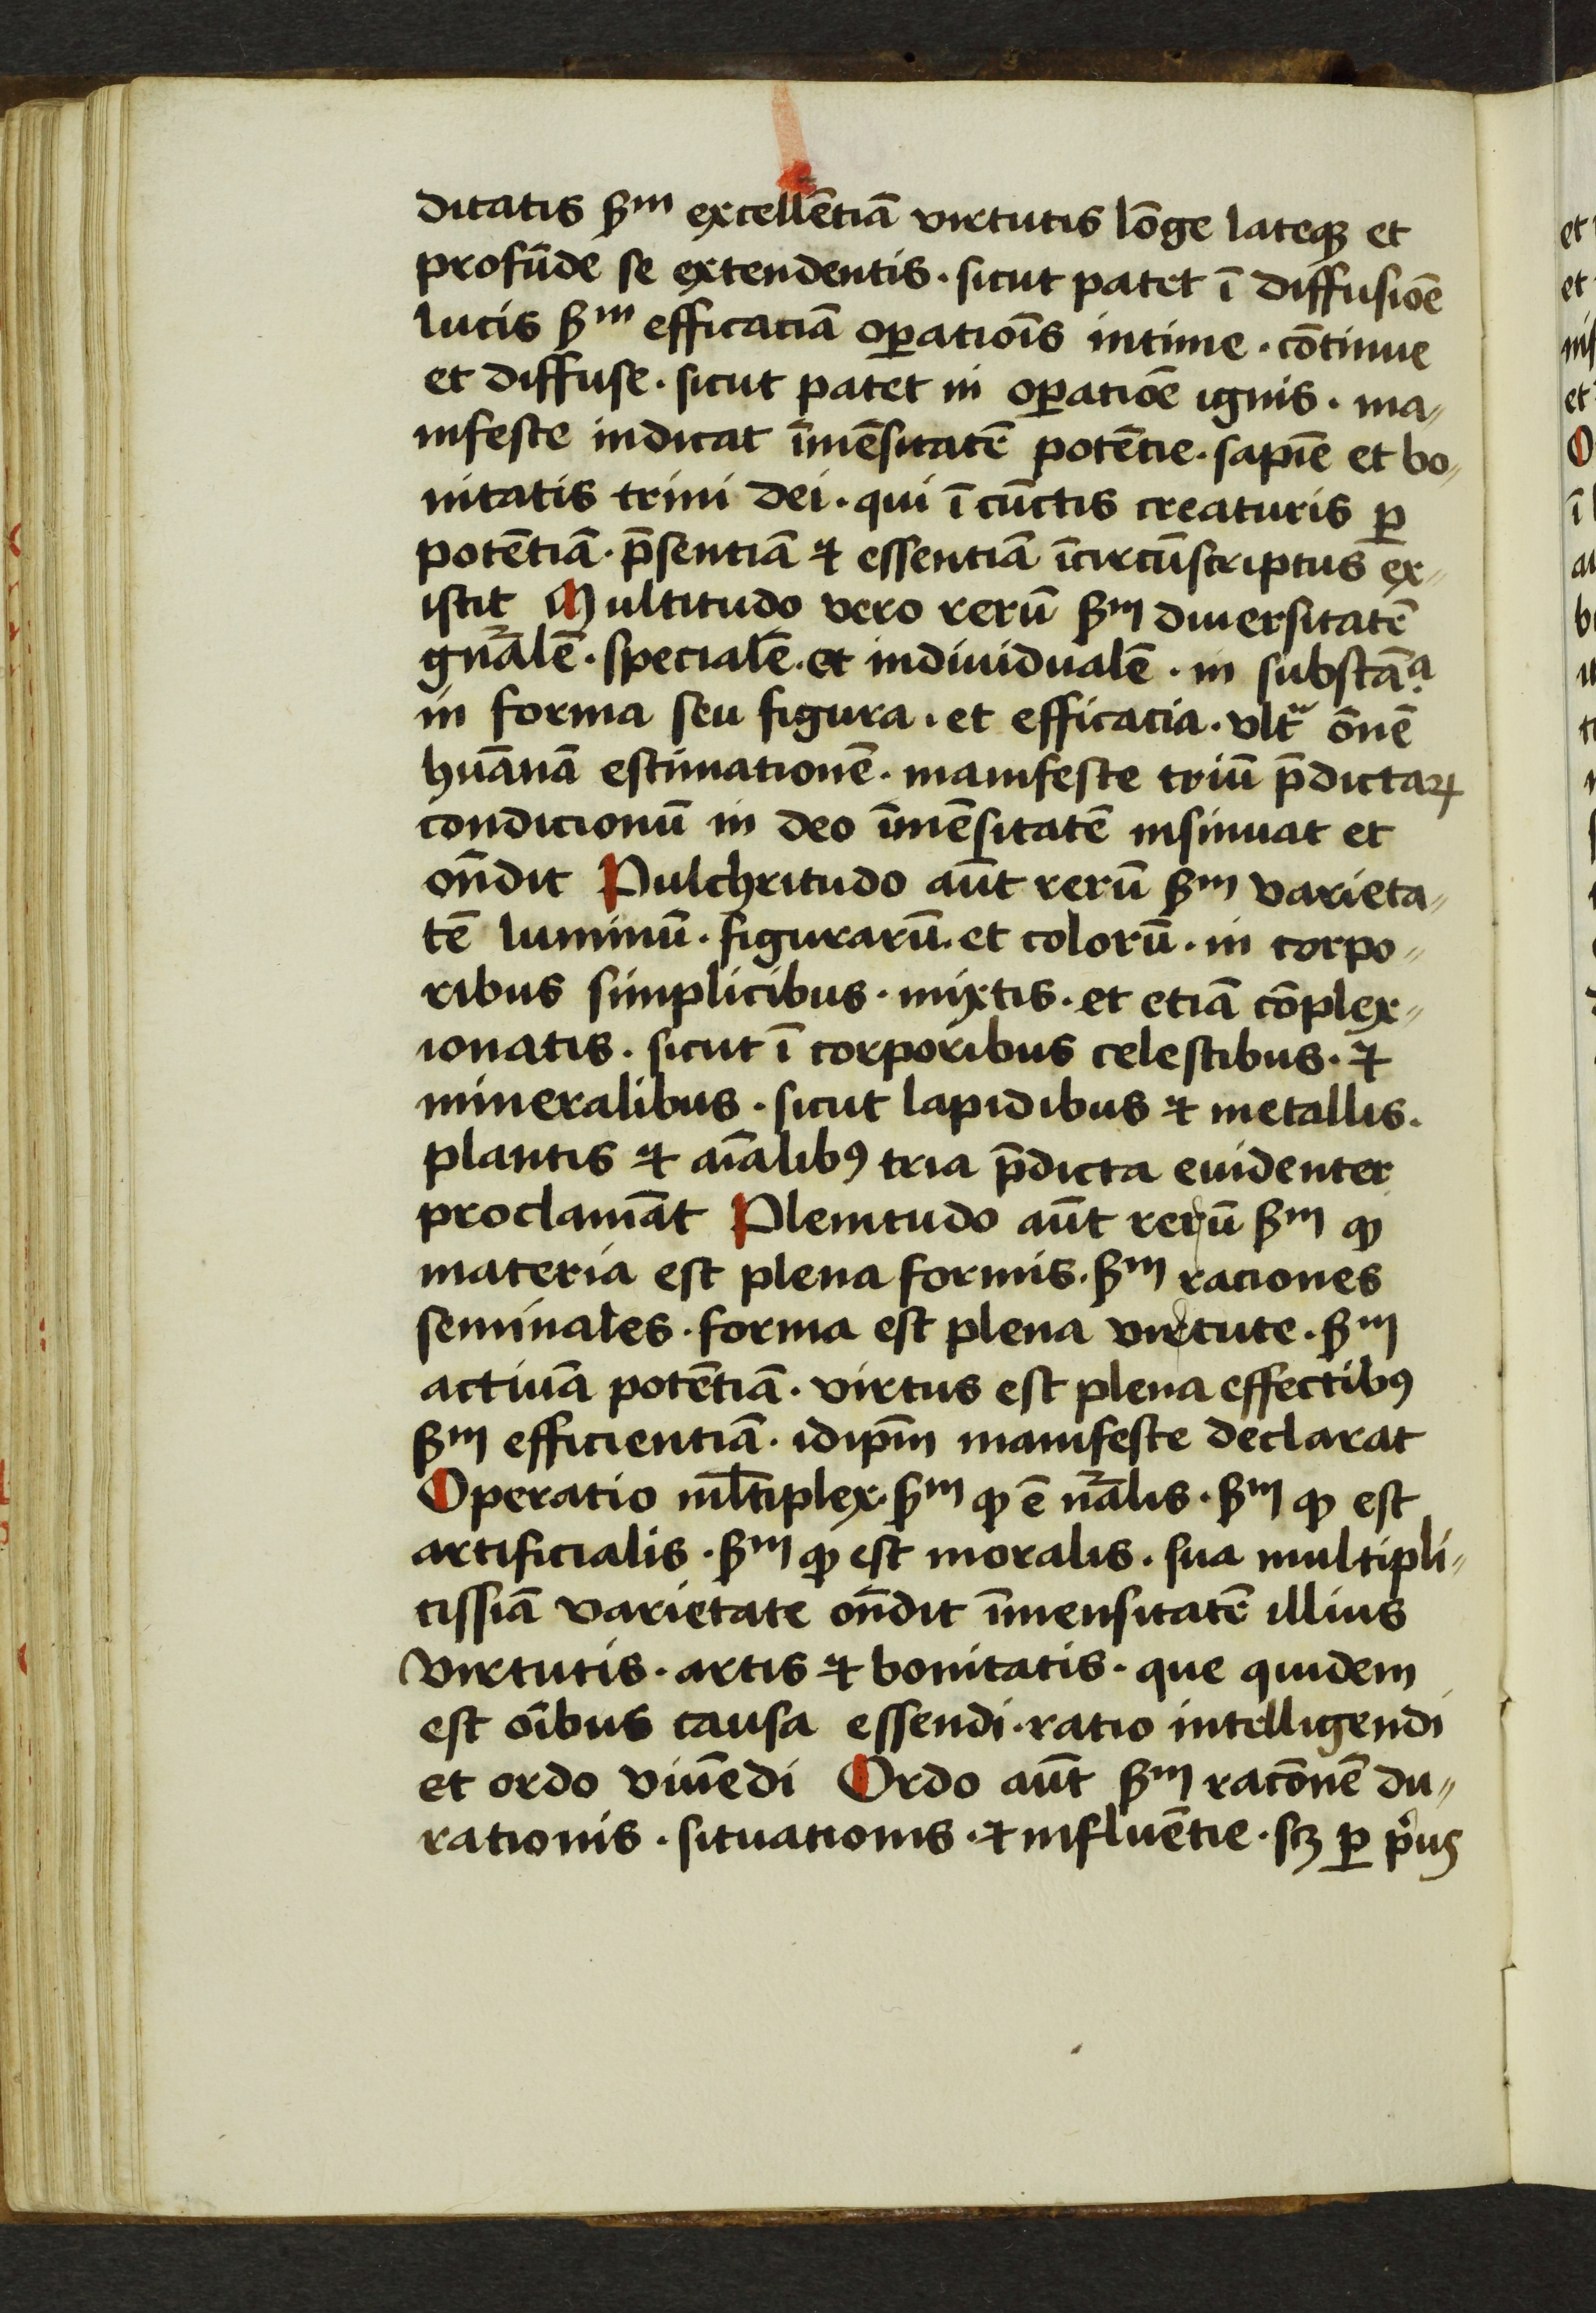 ditatis ẜm excellētiā virtutis lōge lateqꝫ et
profūde se extendentis · sicut patet ī diffusiōe
lucis ẜm efficaciā oꝑatiōis intime · cōtinue
et diffuse · sicut patet in oꝑatiōe ignis · ma〃
nifeste indicat īmēsitatē potētie · sapīe et bo〃
nitatis trini dei · qui ī cūctis creaturis ꝑ
potētiā · p̄sentiā ⁊ essentiā īcircūscriptus ex〃
istit Multitudo vero rerū ẜm diuersitatē
gn̄alē · specialē · et indiuidualē · in substāᵃ ·
in forma seu figura · et efficacia · vltᵃ ōnē
huānā estimationē · manifeste triū p̄dictaꝝ
condicionū in deo īmēsitatē insinuat et
on̄dit Pulchritudo aūt rerū ẜm varieta〃
tē luminū · figurarū · et colorū · in corpo〃
ribus simplicibus · mixtis · et etiā cōplex〃
ionatis · sicut ī corporibus celestibus · ⁊
mineralibus · sicut lapidibus ⁊ metallis ·
plantis ⁊ aīalibꝰ tria p̄dicta euidenter
proclamāt Plenitudo aūt rerū ẜm ꝙ
materia est plena formis · ẜm raciones
seminales · forma est plena virtute · ẜm
actiuā potētiā · virtus est plena effectibꝰ
ẜm efficientiā · idip̄m manifeste declarat
Operatio ml̄tiplex · ẜm ꝙ ē nālis · ẜm ꝙ est
artificialis · ẜm ꝙ est moralis · sua multipli〃
cissiā varietate on̄dit īmensitatē illius
virtutis · artis ⁊ bonitatis · que quidem
est oībus causa essendi · ratio intelligendi
et ordo viuēdi Ordo aūt ẜm racōnē du〃
rationis · situationis · ⁊ influētie · scꝫ ꝑ pͥus